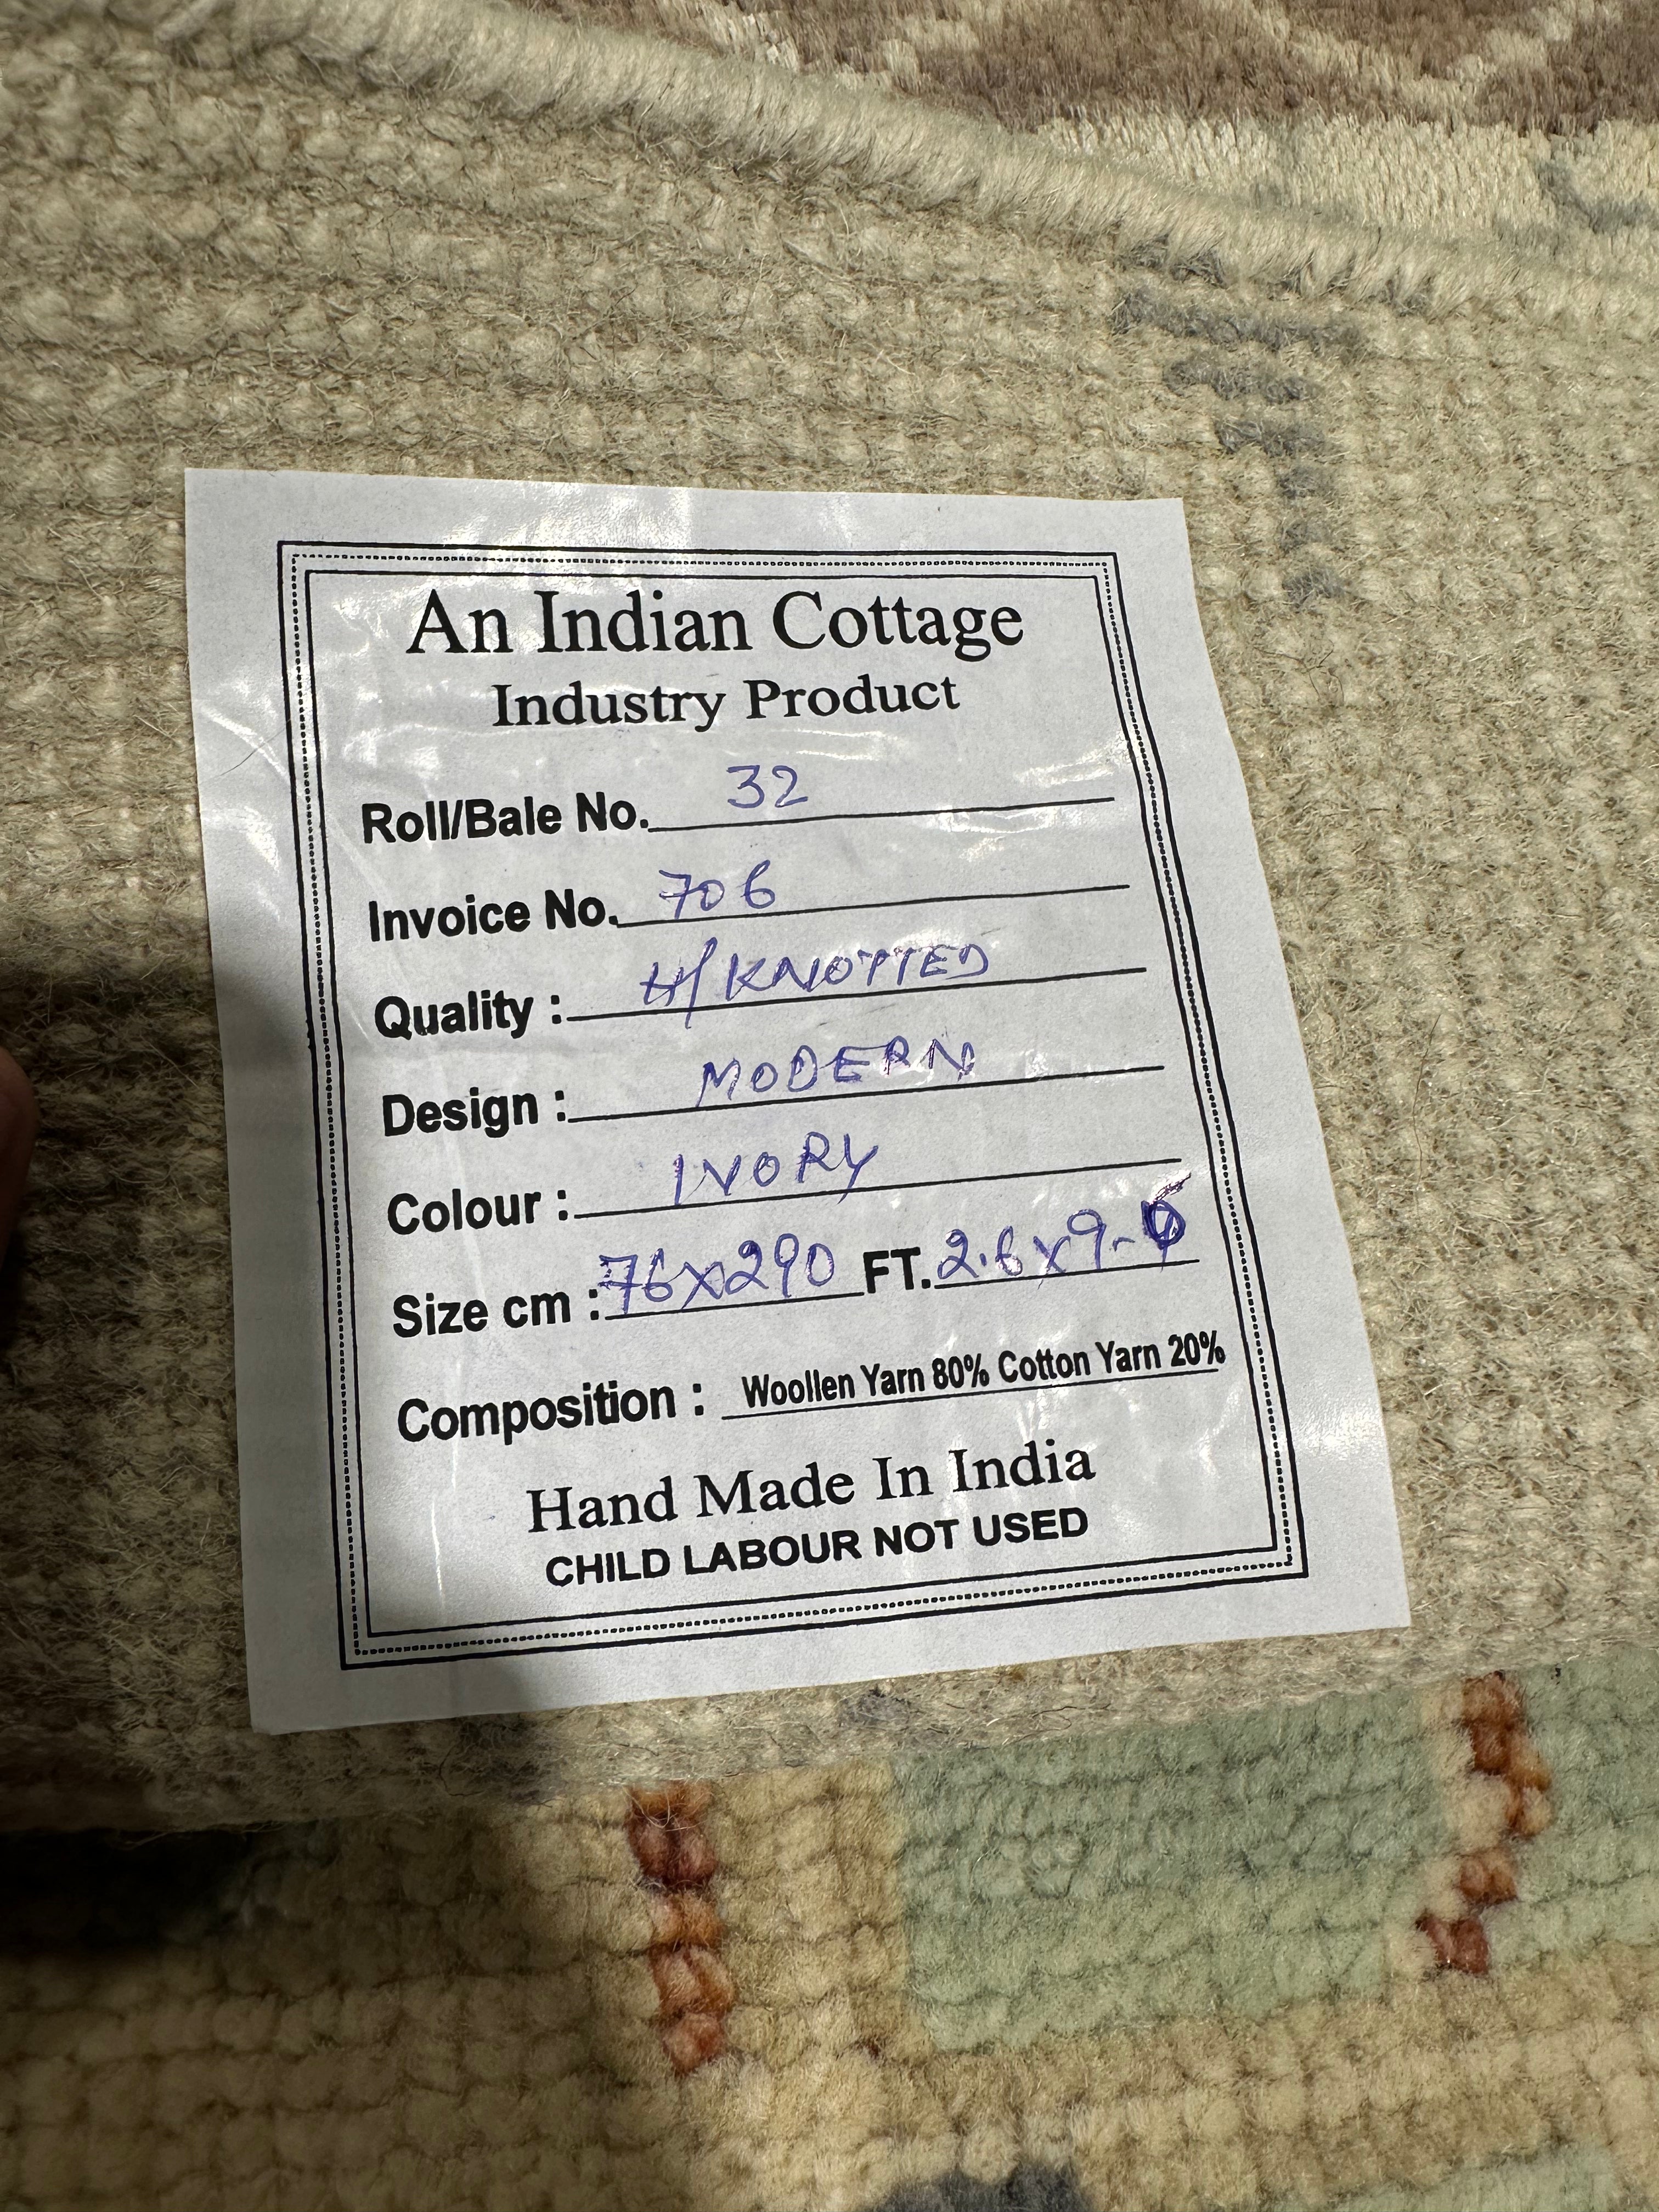 An Indian Cottage
Industry Product
Roll/Bale No. 32
Invoice No. 706
Quality : H/KNOTTED
Design : MODERN
Colour : IVORY
Size cm : 76x290 FT. 2.6x9-6
Composition : Woollen Yarn 80% Cotton Yarn 20%
Hand Made In India
CHILD LABOUR NOT USED